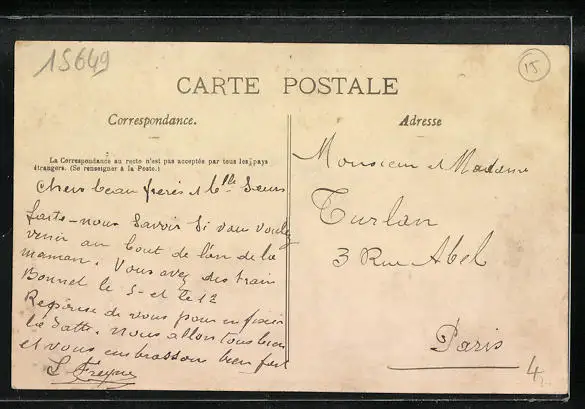 15649
15
CARTE POSTALE
Correspondance.
Adresse
La Correspondance au recto n'est pas acceptée par tous les pays
étrangers. (Se renseigner à la Poste.)
Chers beau frères & blle Sœurs
faite-nous savoir Si vous voulez
venir au bout de l'an de la
maman. Vous avez des train
Bonnet le 5 et le 12
Réponse de vous pour en fixer
la datte. nous allons tous bien
et vous embrassons bien fort
Monsieur et Madame
Turlan
3 Rue Abel
Paris
4